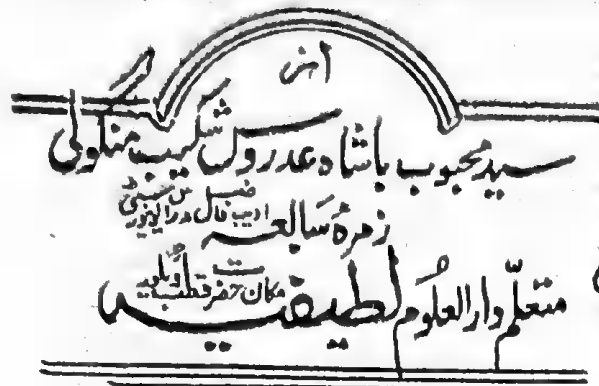 از
سید محبوب باشاہ عدروس شکیب منگولی
زمرہ سابعہ ادیب فاضل مدراس یونیورسٹی
متعلّم دارالعلوم لطیفیہ مکان حضرت قطب ویلور